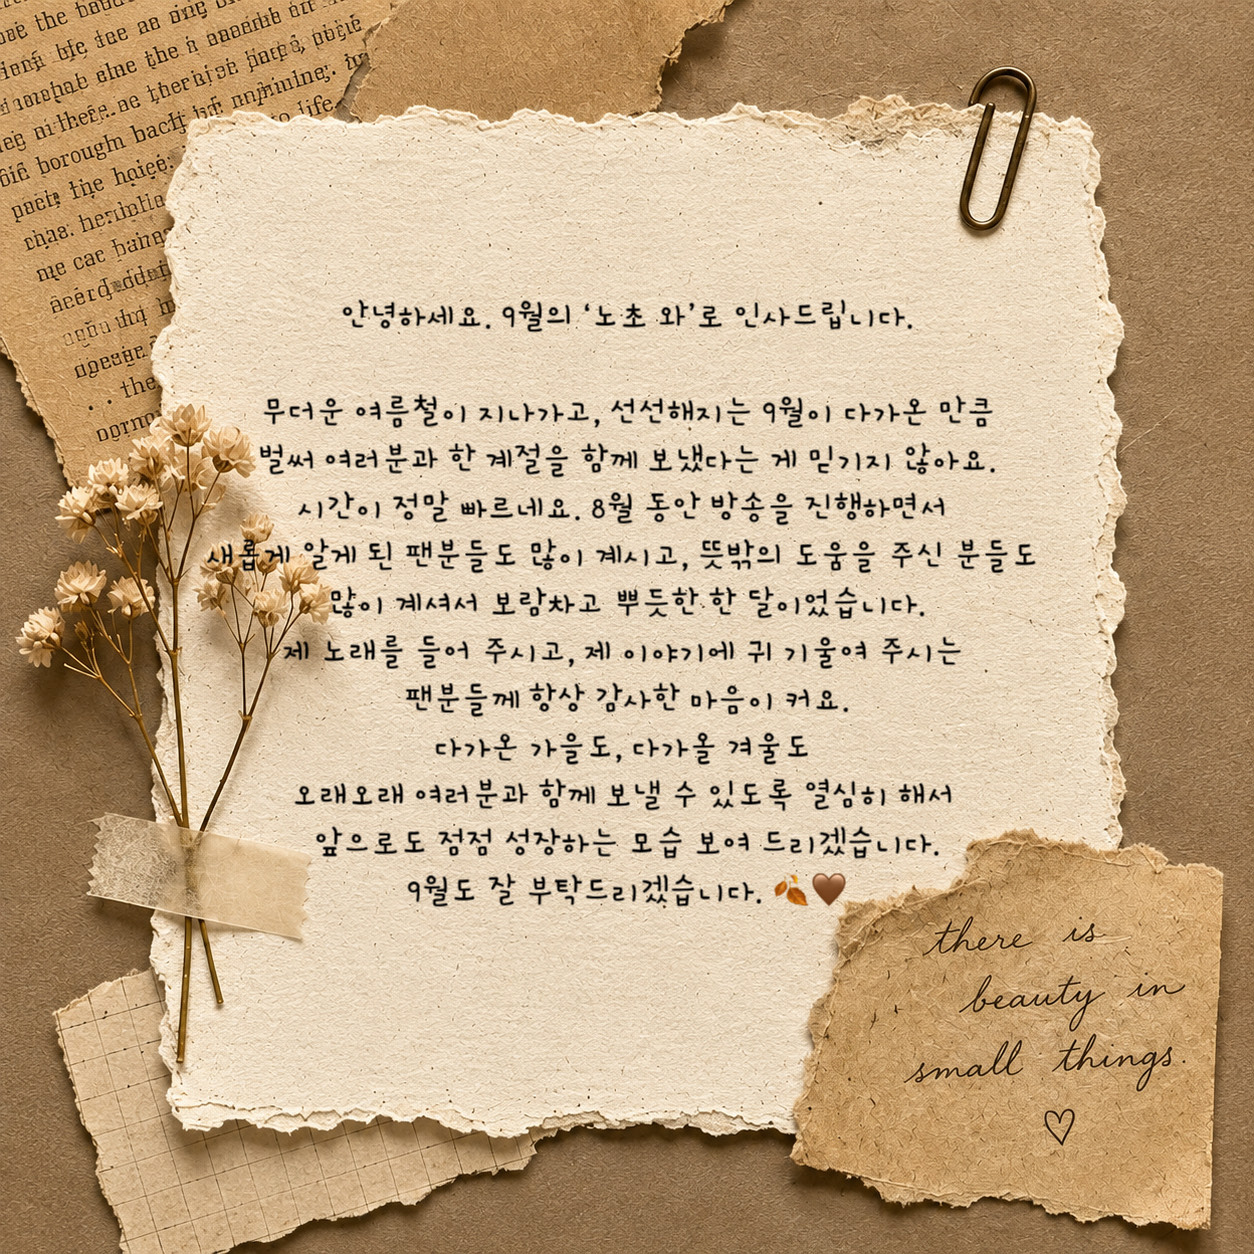 안녕하세요. 9월의 ‘노초 와’로 인사드립니다.
무더운 여름철이 지나가고, 선선해지는 9월이 다가온 만큼
벌써 여러분과 한 계절을 함께 보냈다는 게 믿기지 않아요.
시간이 정말 빠르네요. 8월 동안 방송을 진행하면서
새롭게 알게 된 팬분들도 많이 계시고, 뜻밖의 도움을 주신 분들도
많이 계셔서 보람차고 뿌듯한 한 달이었습니다.
제 노래를 들어 주시고, 제 이야기에 귀 기울여 주시는
팬분들께 항상 감사한 마음이 커요.
다가온 가을도, 다가올 겨울도
오래오래 여러분과 함께 보낼 수 있도록 열심히 해서
앞으로도 점점 성장하는 모습 보여 드리겠습니다.
9월도 잘 부탁드리겠습니다. 🍂🤎
there is
beauty in
small things.
♡